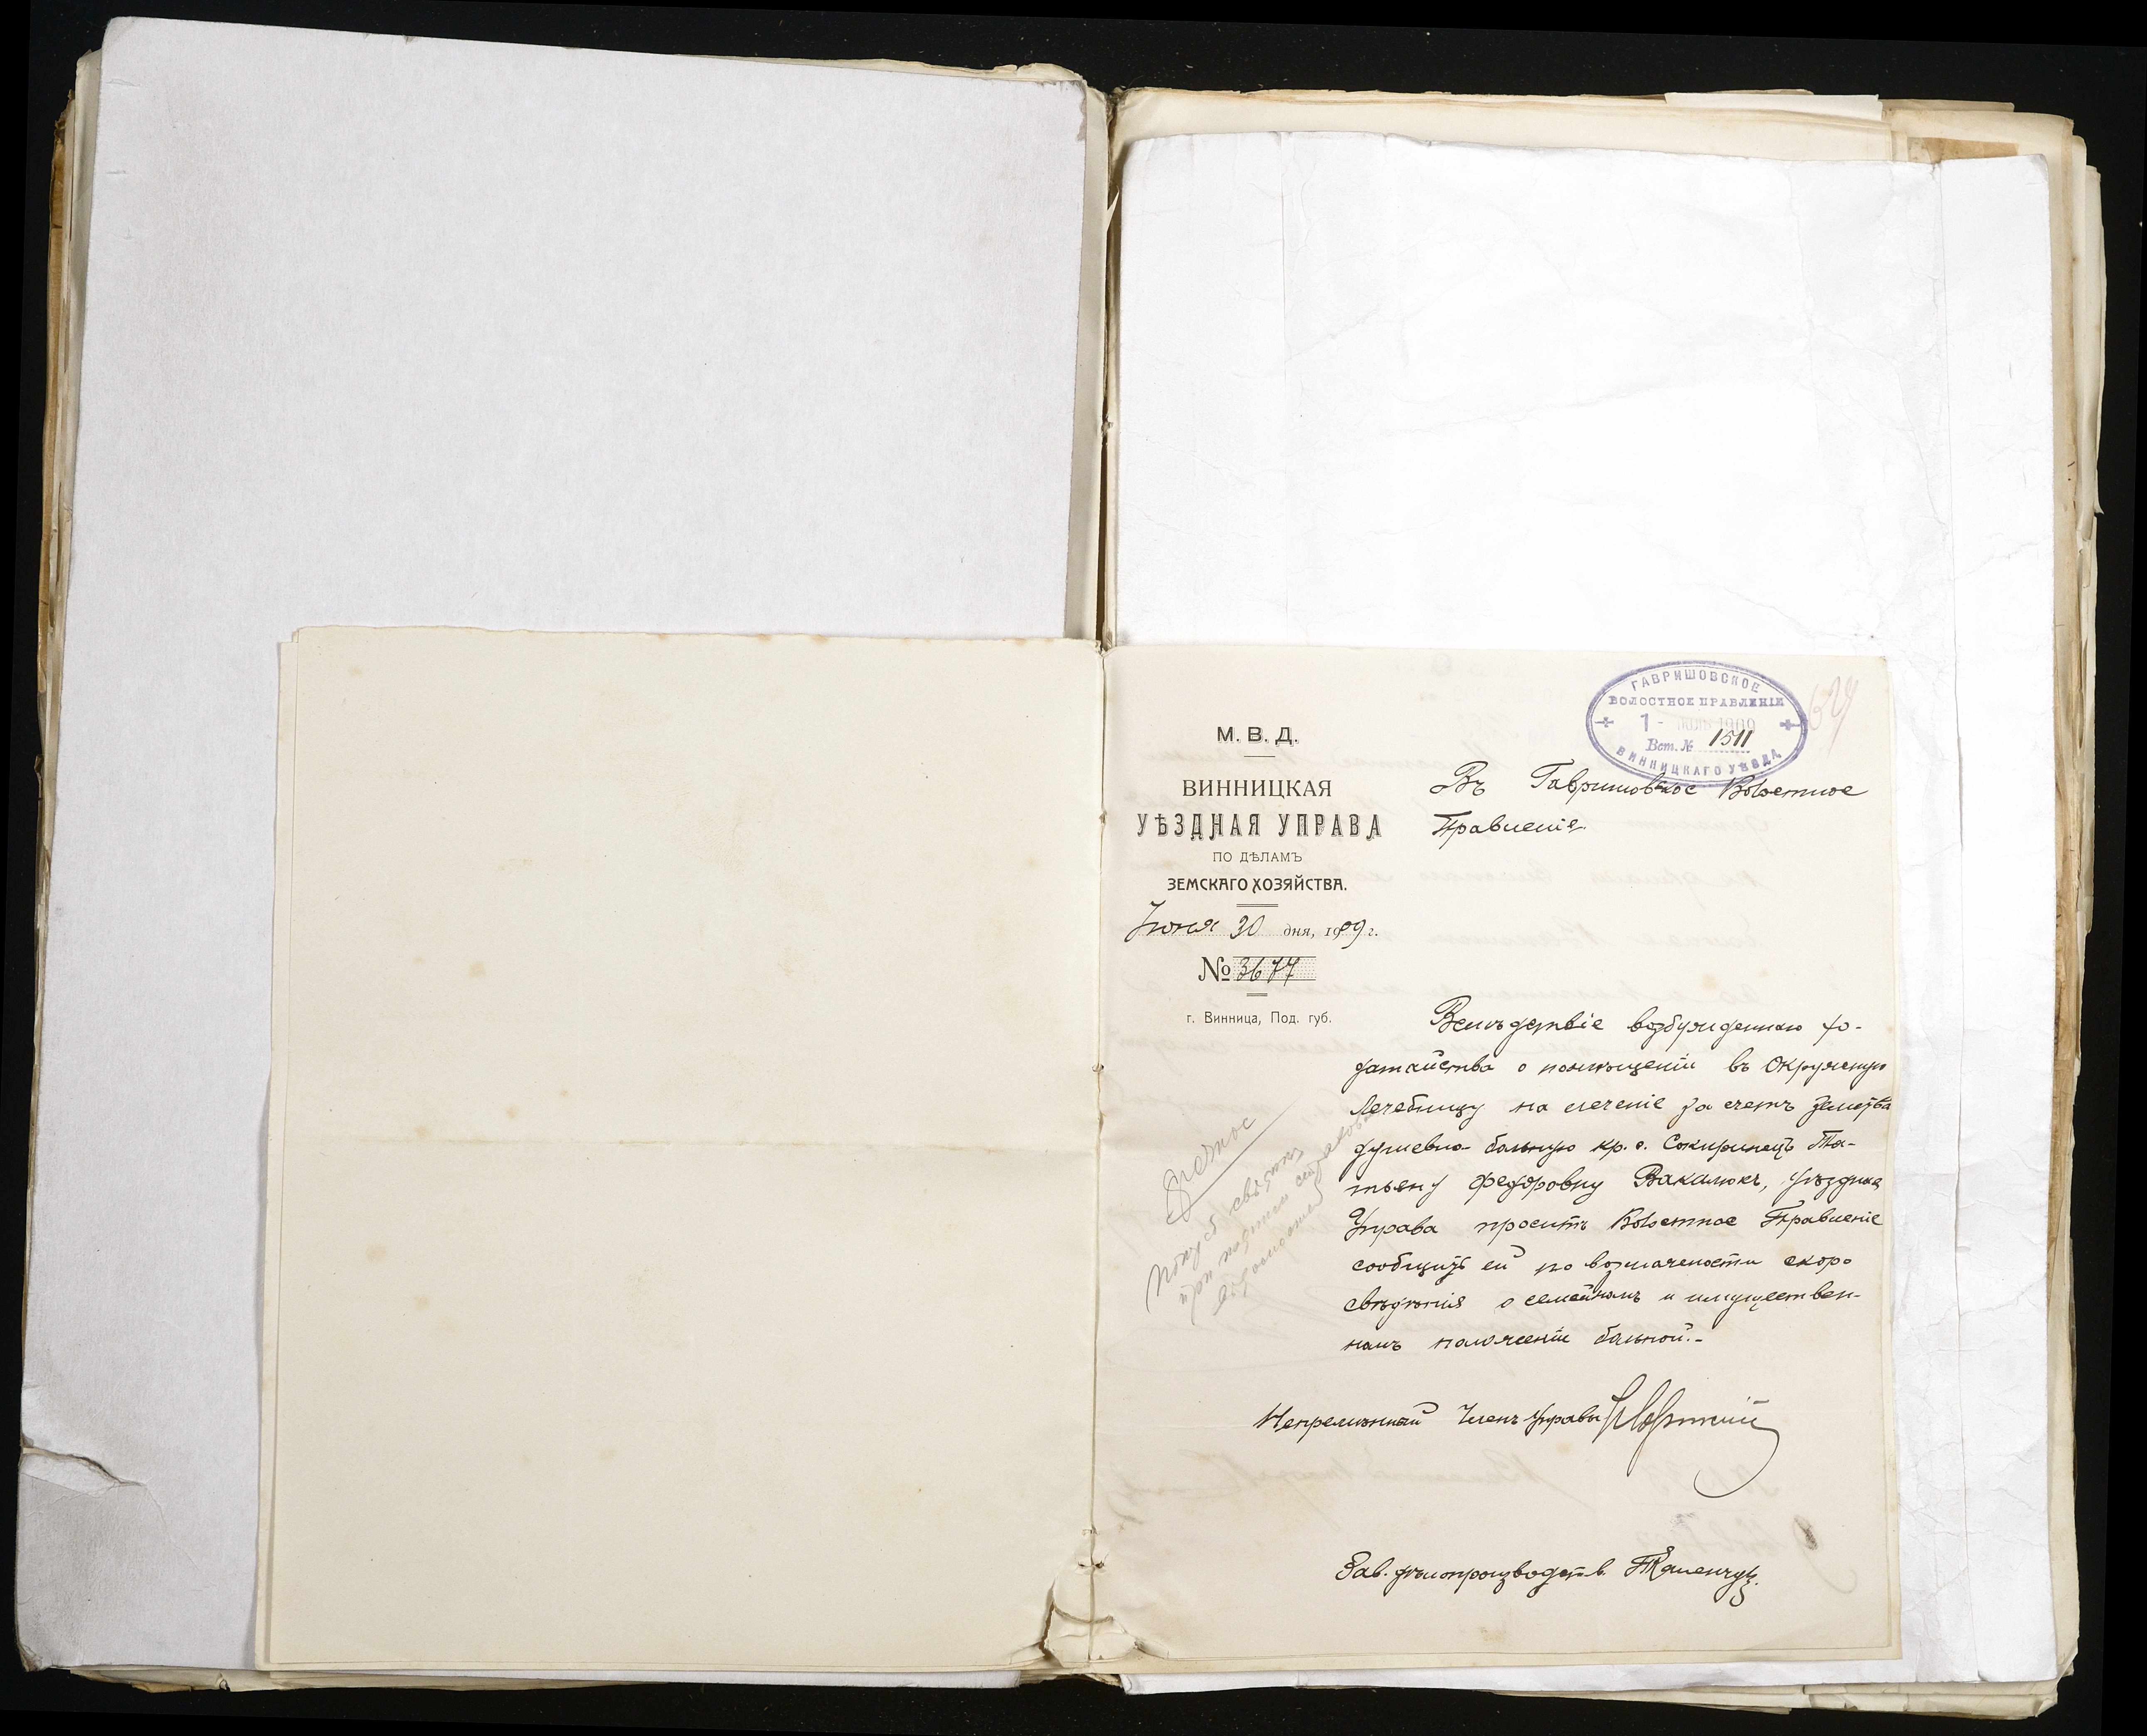 ГАВРИШОВСКОЕ
ВОЛОСТНОЕ ПРАВЛЕНІЕ
1 - 1909
Вст. № 1511
ВИННИЦКАГО УѢЗДА
М. В. Д.
ВИННИЦКАЯ
УѢЗДНАЯ УПРАВА
ПО ДѢЛАМЪ
ЗЕМСКАГО ХОЗЯЙСТВА.
Іюня 30 дня, 1909 г.
№ 3677
г. Винница, Под. губ.
Въ Гавришовское Волостное
Правленіе.
Вслѣдствіе возбужденнаго хо-
датайства о помѣщеніи въ Окружную
Лечебницу на леченіе за счетъ Земства
душевно-больную кр. с. Сокиринецъ Та-
тьяну Федоровну Вакалюкъ, Уѣздная
Управа проситъ Волостное Правленіе
сообщить ей по возможности скоро
свѣдѣнія о семейномъ и имуществен-
номъ положеніи больной.-
Непремѣнный Членъ Управы
Зав. дѣлопроизводств.